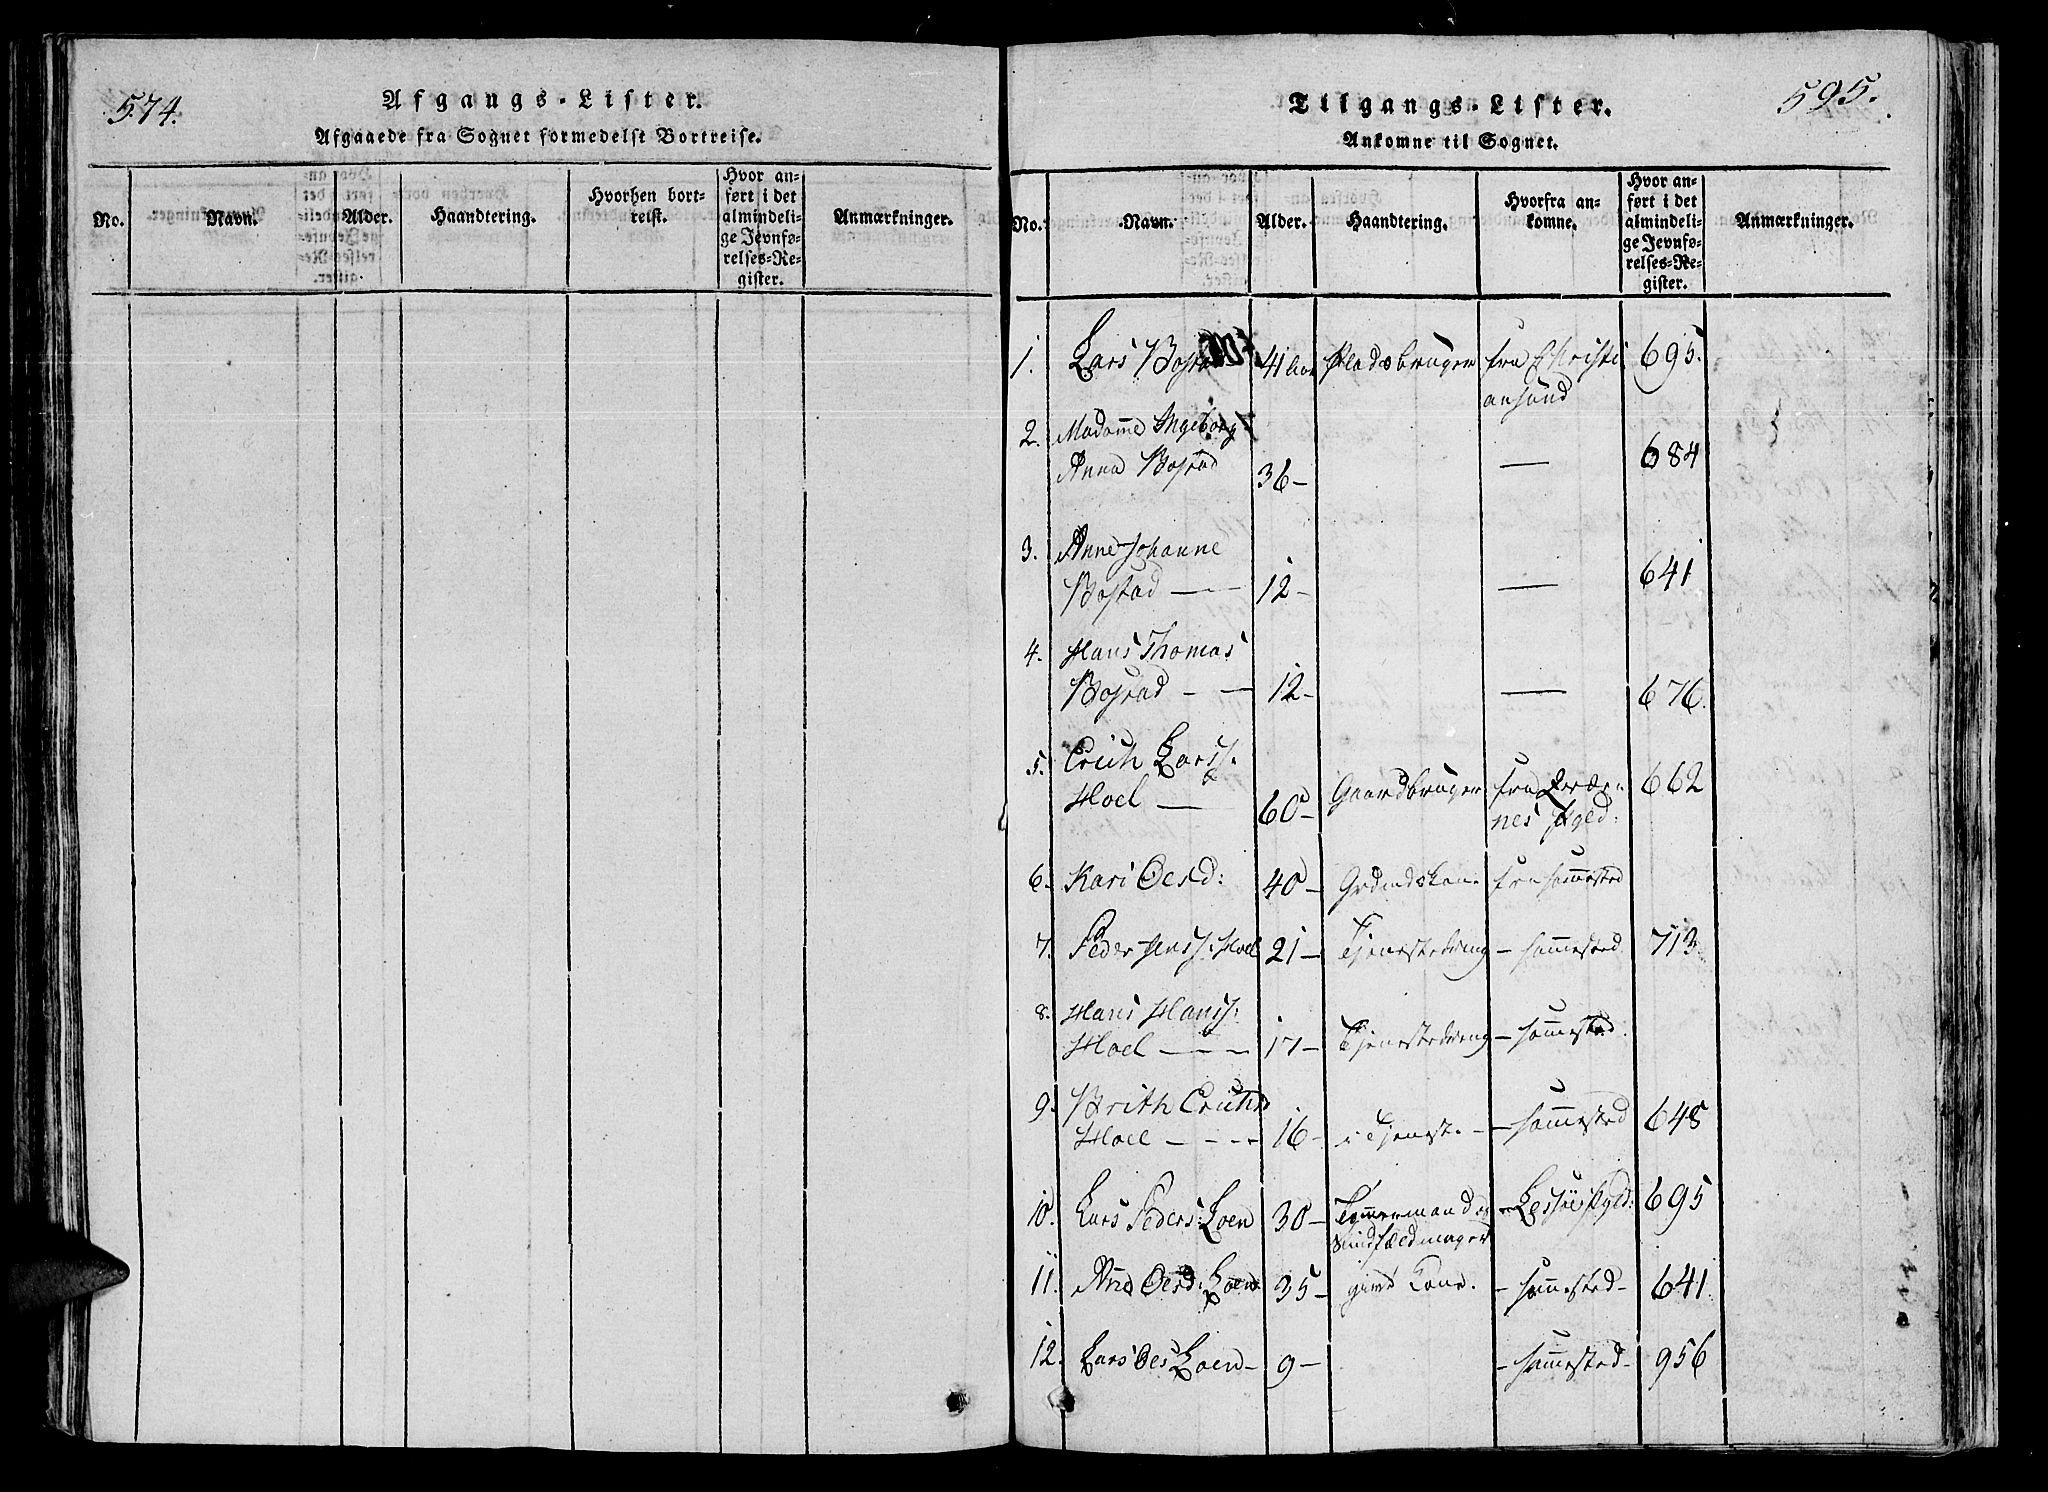 574.
Afgangs-Lister.
Afgaaede fra Sognet formedelst Bortreise.
No. Navn. Alder. Haandtering. Hvorhen bort-
reist. Hvor an-
ført i det
almindeli-
ge Jevnfø-
relses-Re-
gister. Anmærkninger.
595.
Tilgangs-Lister.
Ankomne til Sognet.
No. Navn. Alder. Haandtering. Hvorfra an-
komne. Hvor an-
ført i det
almindeli-
ge Jevnfø-
relses-Re-
gister. Anmærkninger.
1. Lars Bostad 41 Aar Pladsbruger fra Christi 695.
ansund
2. Madame Ingeborg
Anna Bostad 36- — 684
3. Anne Johanne
Bostad — 12- — 641
4. Hans Thomas
Bostad - — 12- — 676.
5. Erich Larss.
Hoel — 60- Gaardbruger fra 662
nes Pgld:
6. Kari Oesd: 40- fra sammested
7. Peder Jenss: Hoel 21- Tjenestedreng - sammested 713
8. Hans Hanss:
Hoel - - - 17- Tjenestedreng - sammested.
9. Brith Erichsd
Hoel - - - - 16- i Tjeneste - - sammested 648
10. Lars Peders: Loen 30- Tømmermand og - Lessøe Pgld: 695
11. Ane Oesd: Loen 35- givt Kone. - sammested- 641.
12. Lars Oes Loen- 9- - sammested- 956